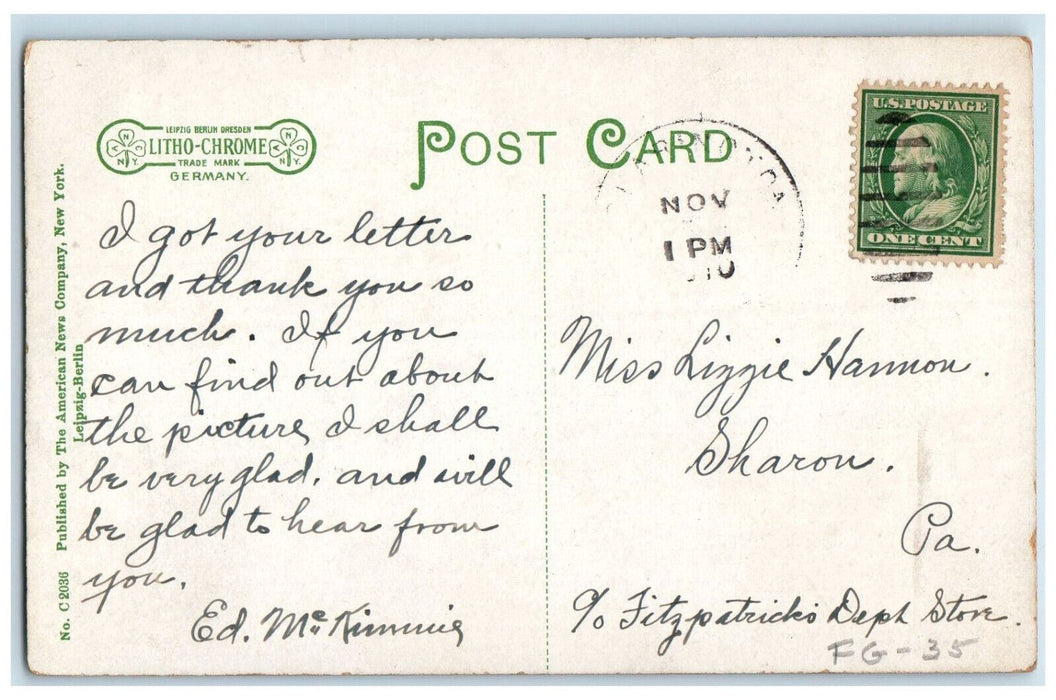 LEIPZIG BERLIN DRESDEN
LITHO-CHROME
TRADE MARK
GERMANY.
POST CARD
NOV
1 PM
U.S. POSTAGE
ONE CENT
No. C 2036 Published by The American News Company, New York.
Leipzig-Berlin
I got your letter
and thank you so
much. If you
can find out about
the picture, I shall
be very glad. and will
be glad to hear from
you.
Ed. McKimmie
Miss Lizzie Hannon.
Sharon.
Pa.
c/o Fitzpatrick's Dept Store.
FG-35